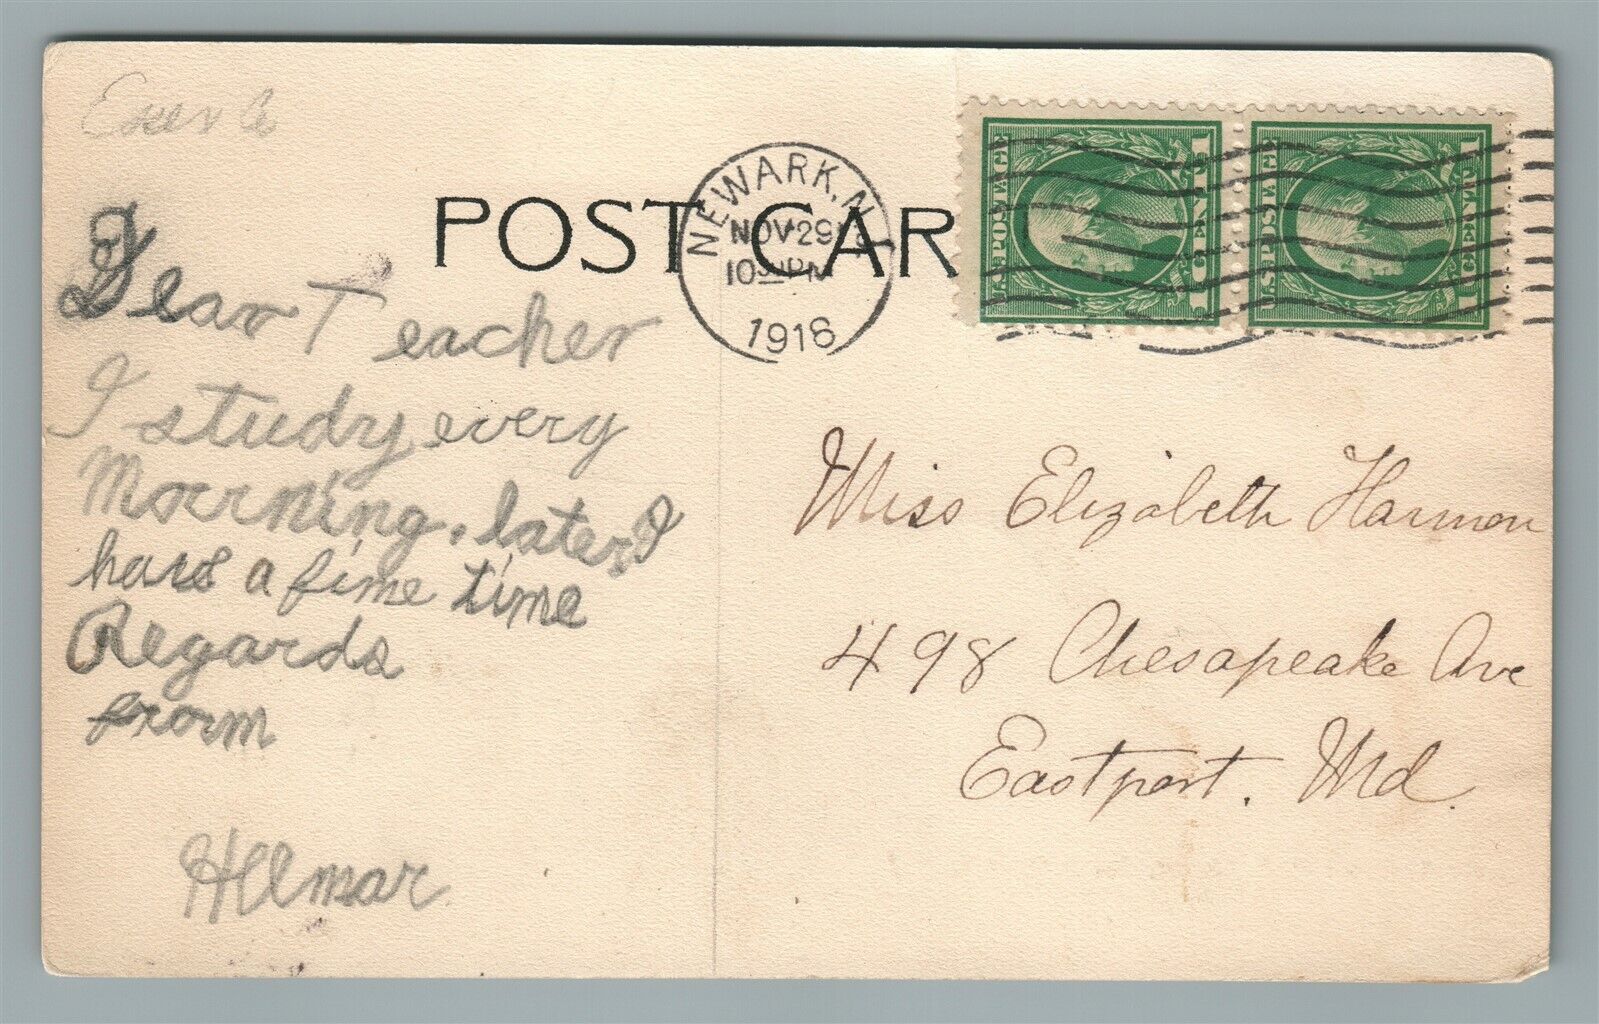 Dear Teacher
I study every
Morning. later I
have a fime time
Regards
from
Hilmar
POST CAR
NEWARK, N.J.
NOV 29
10 PM
1918
U.S. POSTAGE
1 CENT 1
U.S. POSTAGE
1 CENT 1
Miss Elizabeth Harmon
498 Chesapeake Ave
Eastport. Md.